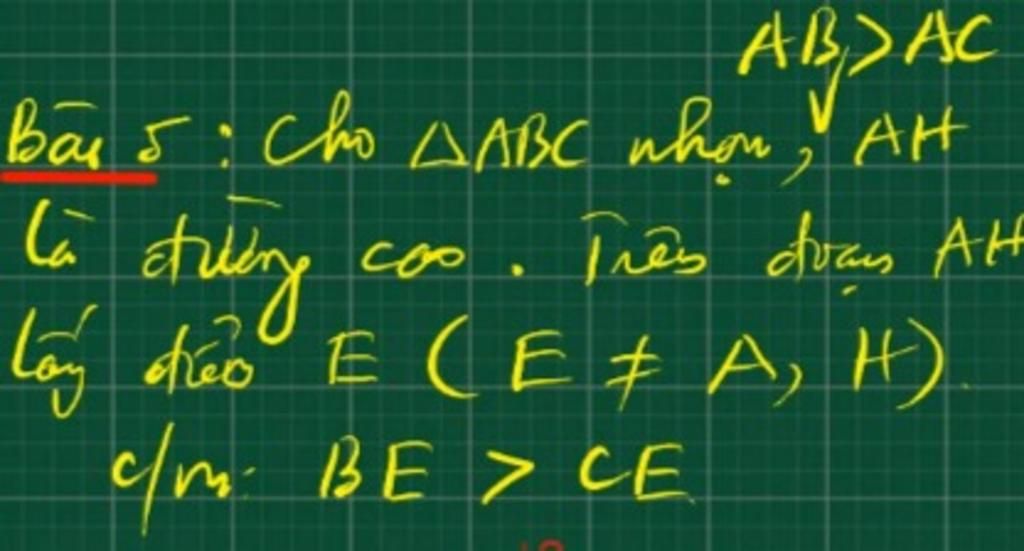 AB > AC
Bài 5 : Cho △ABC nhọn, AH
là đường cao. Trên đoạn AH
lấy điểm E (E ≠ A, H).
c/m: BE > CE